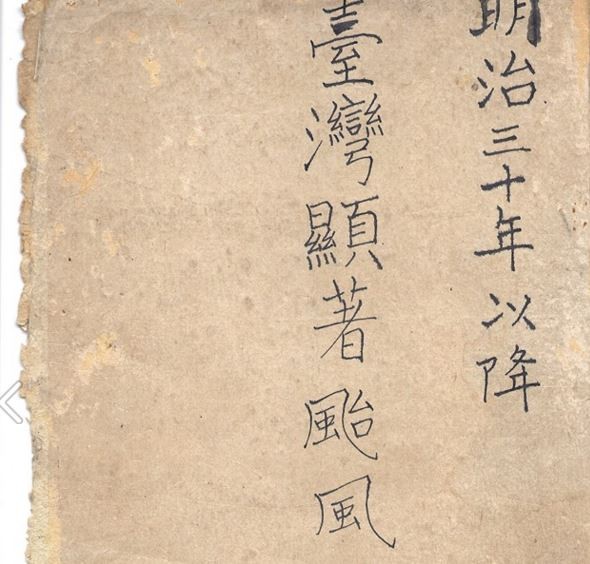 明治三十年以降
臺灣顯著颱風